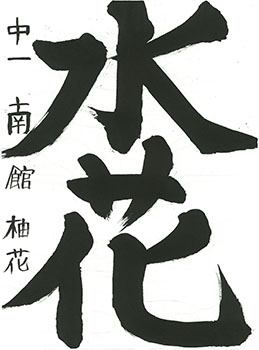 水花
中一 南館 柚花